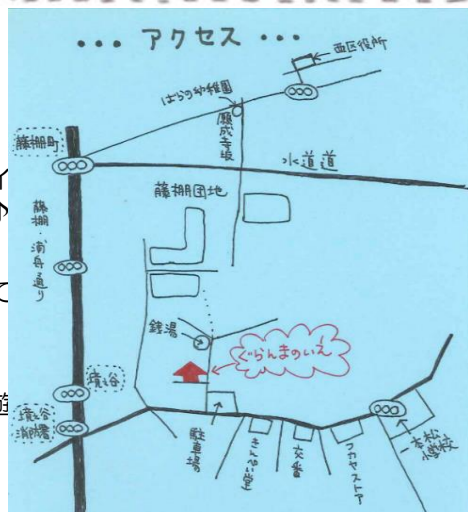 ・・・ アクセス ・・・
西区役所
ばらの幼稚園
願成寺坂
藤棚町
水道道
藤棚団地
藤棚・浦舟通り
銭湯
ぐらんまのいえ
境谷
境谷
消防署
駐車場
きんぺい堂
交番
フカヤストア
一本松
小学校